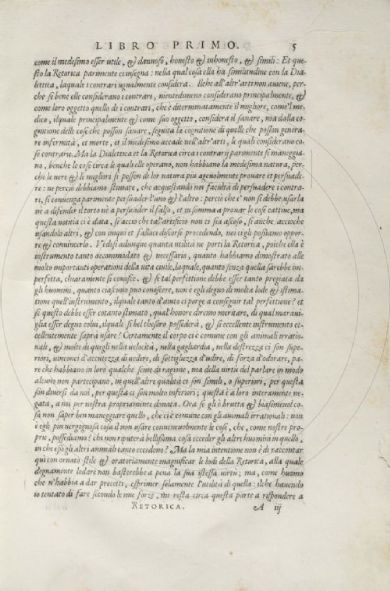 LIBRO PRIMO. 5
come il medesimo esser utile, & dannoso, honesto & inhonesto, & simili: Et que
sto la Retorica parimente ci insegna: nella qual cosa ella ha similitudine con la Dia
lettica, laquale i contrari ugualmente considera. Ilche all'altr'arti non auuiene, per-
che se bene elle considerano i contrari, nientedimeno considerano principalmente, &
come loro oggetto quello de i contrari, che è determinatamente il migliore, come l'me
dico, ilquale principalmente & come suo oggetto, considera il sanare, ma dalla co
gnitione delle cose che possono sanare, seguita la cognitione di quelle che possono genera
re infermità, et morte, et il medesimo accade nell'altr'arti, le quali considerano co
se contrarie. Ma la Dialettica et la Retorica circa i contrari parimente si maneggia
no, benche le cose circa le quali elle operano, non habbiano la medesima natura, per
che le uere & le migliori si possono di lor natura piu ageuolmente prouare et persuade
re: ne percio debbiamo stimare, che acquistando noi facultà di persuadere i contra-
ri, si conuenga parimente persuader l'uno & l'altro: percio che e' non si debbe usarla
ne a difender il torto nè a persuader il falso, et in somma a prouar le cose cattiue, ma
questa uarietà ci è data, sì accio che tal'artificio non ci sia ascoso, sì anche accioche
usandolo altri, & con inganni et fallacie discorso procedendo, noi cio gli possiamo oppor-
re & conuincerlo. Vedesi adunque quanta utilità ne porti la Retorica, poiche ella è
instrumento tanto accommodato & necessario, quanto habbiamo dimostrato alle
molto importanti operationi della uita ciuile, la quale, quanto senza quella sarebbe im-
perfetta, chiaramente si conosce. & se tal perfettione debbe esser tanto pregiata da
gli huomini, quanto ciascuno puo conoscere, non è egli degno di molta lode & stima-
tione quell'instrumento, ilquale tanto d'aiuto ci porge a conseguir tal perfettione? et
se questo debbe esser cotanto stimato, qual honore diremo meritare, di qual marauì
glia esser degno colui, ilquale sì bel thesoro possederà, & sì eccellente instrumento ec-
cellentemente saprà usare? Certamente il corpo ci è commune con gli animali irratio-
nali, & molti di quegli nella uelocità, nella gagliardia, nella destrezza ci son supe-
riori, uinconci d'acutezza di uedere, di sottigliezza d'udire, di forza d'odorare, pa-
re che habbiano in loro qualche seme di ragione, ma della uirtù del parlare in modo
alcuno non participano, in quell'altre qualità ci son simili, o superiori, per questa
son diuersi da noi, per questa ci son molto inferiori; questa è a loro interamente ne-
gata, a noi per nostra propriamente donata. Ora se gli è brutta & biasimeuol co-
sa non saper ben maneggiare quello, che ci è comune con gli animali irrationali: non
è egli piu uergognosa cosa il non usare conueneuolmente le cose, che, come nostre pro-
prie, possediamo? chi non riputerà bellissima cosa excceder gli altri huomini in quello,
in che essi gli altri animali tanto eccedono? Ma la mia intentione non è di raccontar
qui con ornato stile & oratoriamente magnificar le lodi della Retorica, alla quale
degnamente lodare non basterebbe a pena la sua istessa uirtù; ma, come huomo
che n'habbia a dar precetti, esprimer solamente l'utilità di quella: ilche hauendo
io tentato di fare secondo le mie forze, mi resta circa questa parte a rispondere a
RETORICA. A iij